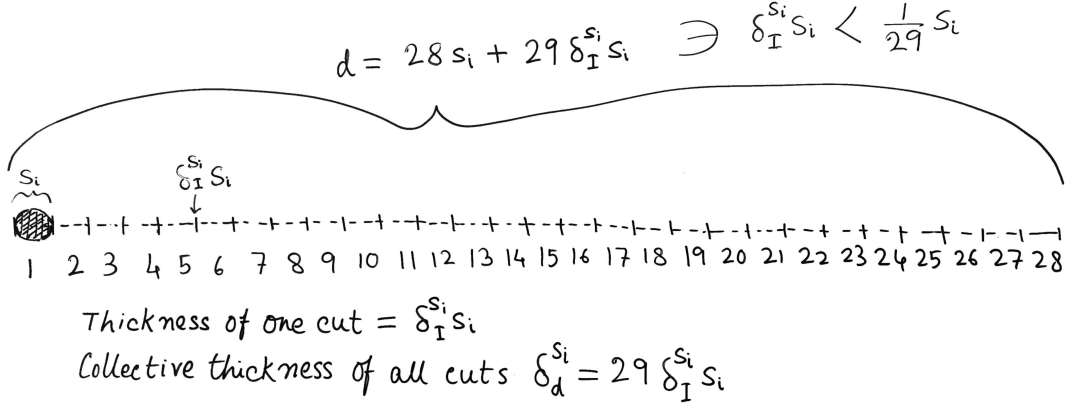 d = 28 Sᵢ + 29 δ_I^{Sᵢ} Sᵢ ∋ δ_I^{Sᵢ} Sᵢ < 1/29 Sᵢ
Sᵢ
δ_I^{Sᵢ} Sᵢ
1 2 3 4 5 6 7 8 9 10 11 12 13 14 15 16 17 18 19 20 21 22 23 24 25 26 27 28
Thickness of one cut = δ_I^{Sᵢ} Sᵢ
Collective thickness of all cuts δ_d^{Sᵢ} = 29 δ_I^{Sᵢ} Sᵢ